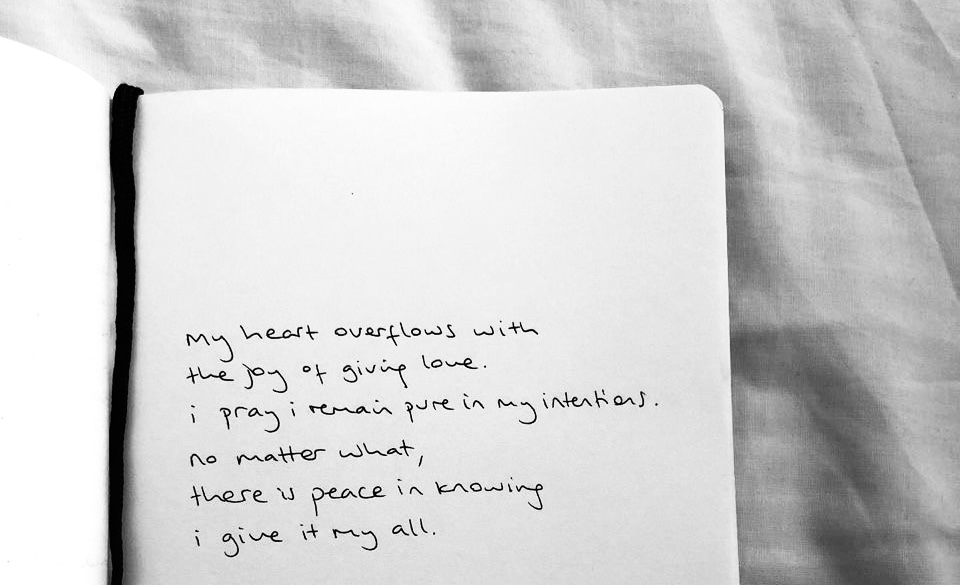 my heart overflows with
the joy of giving love.
i pray i remain pure in my intentions.
no matter what,
there is peace in knowing
i give it my all.